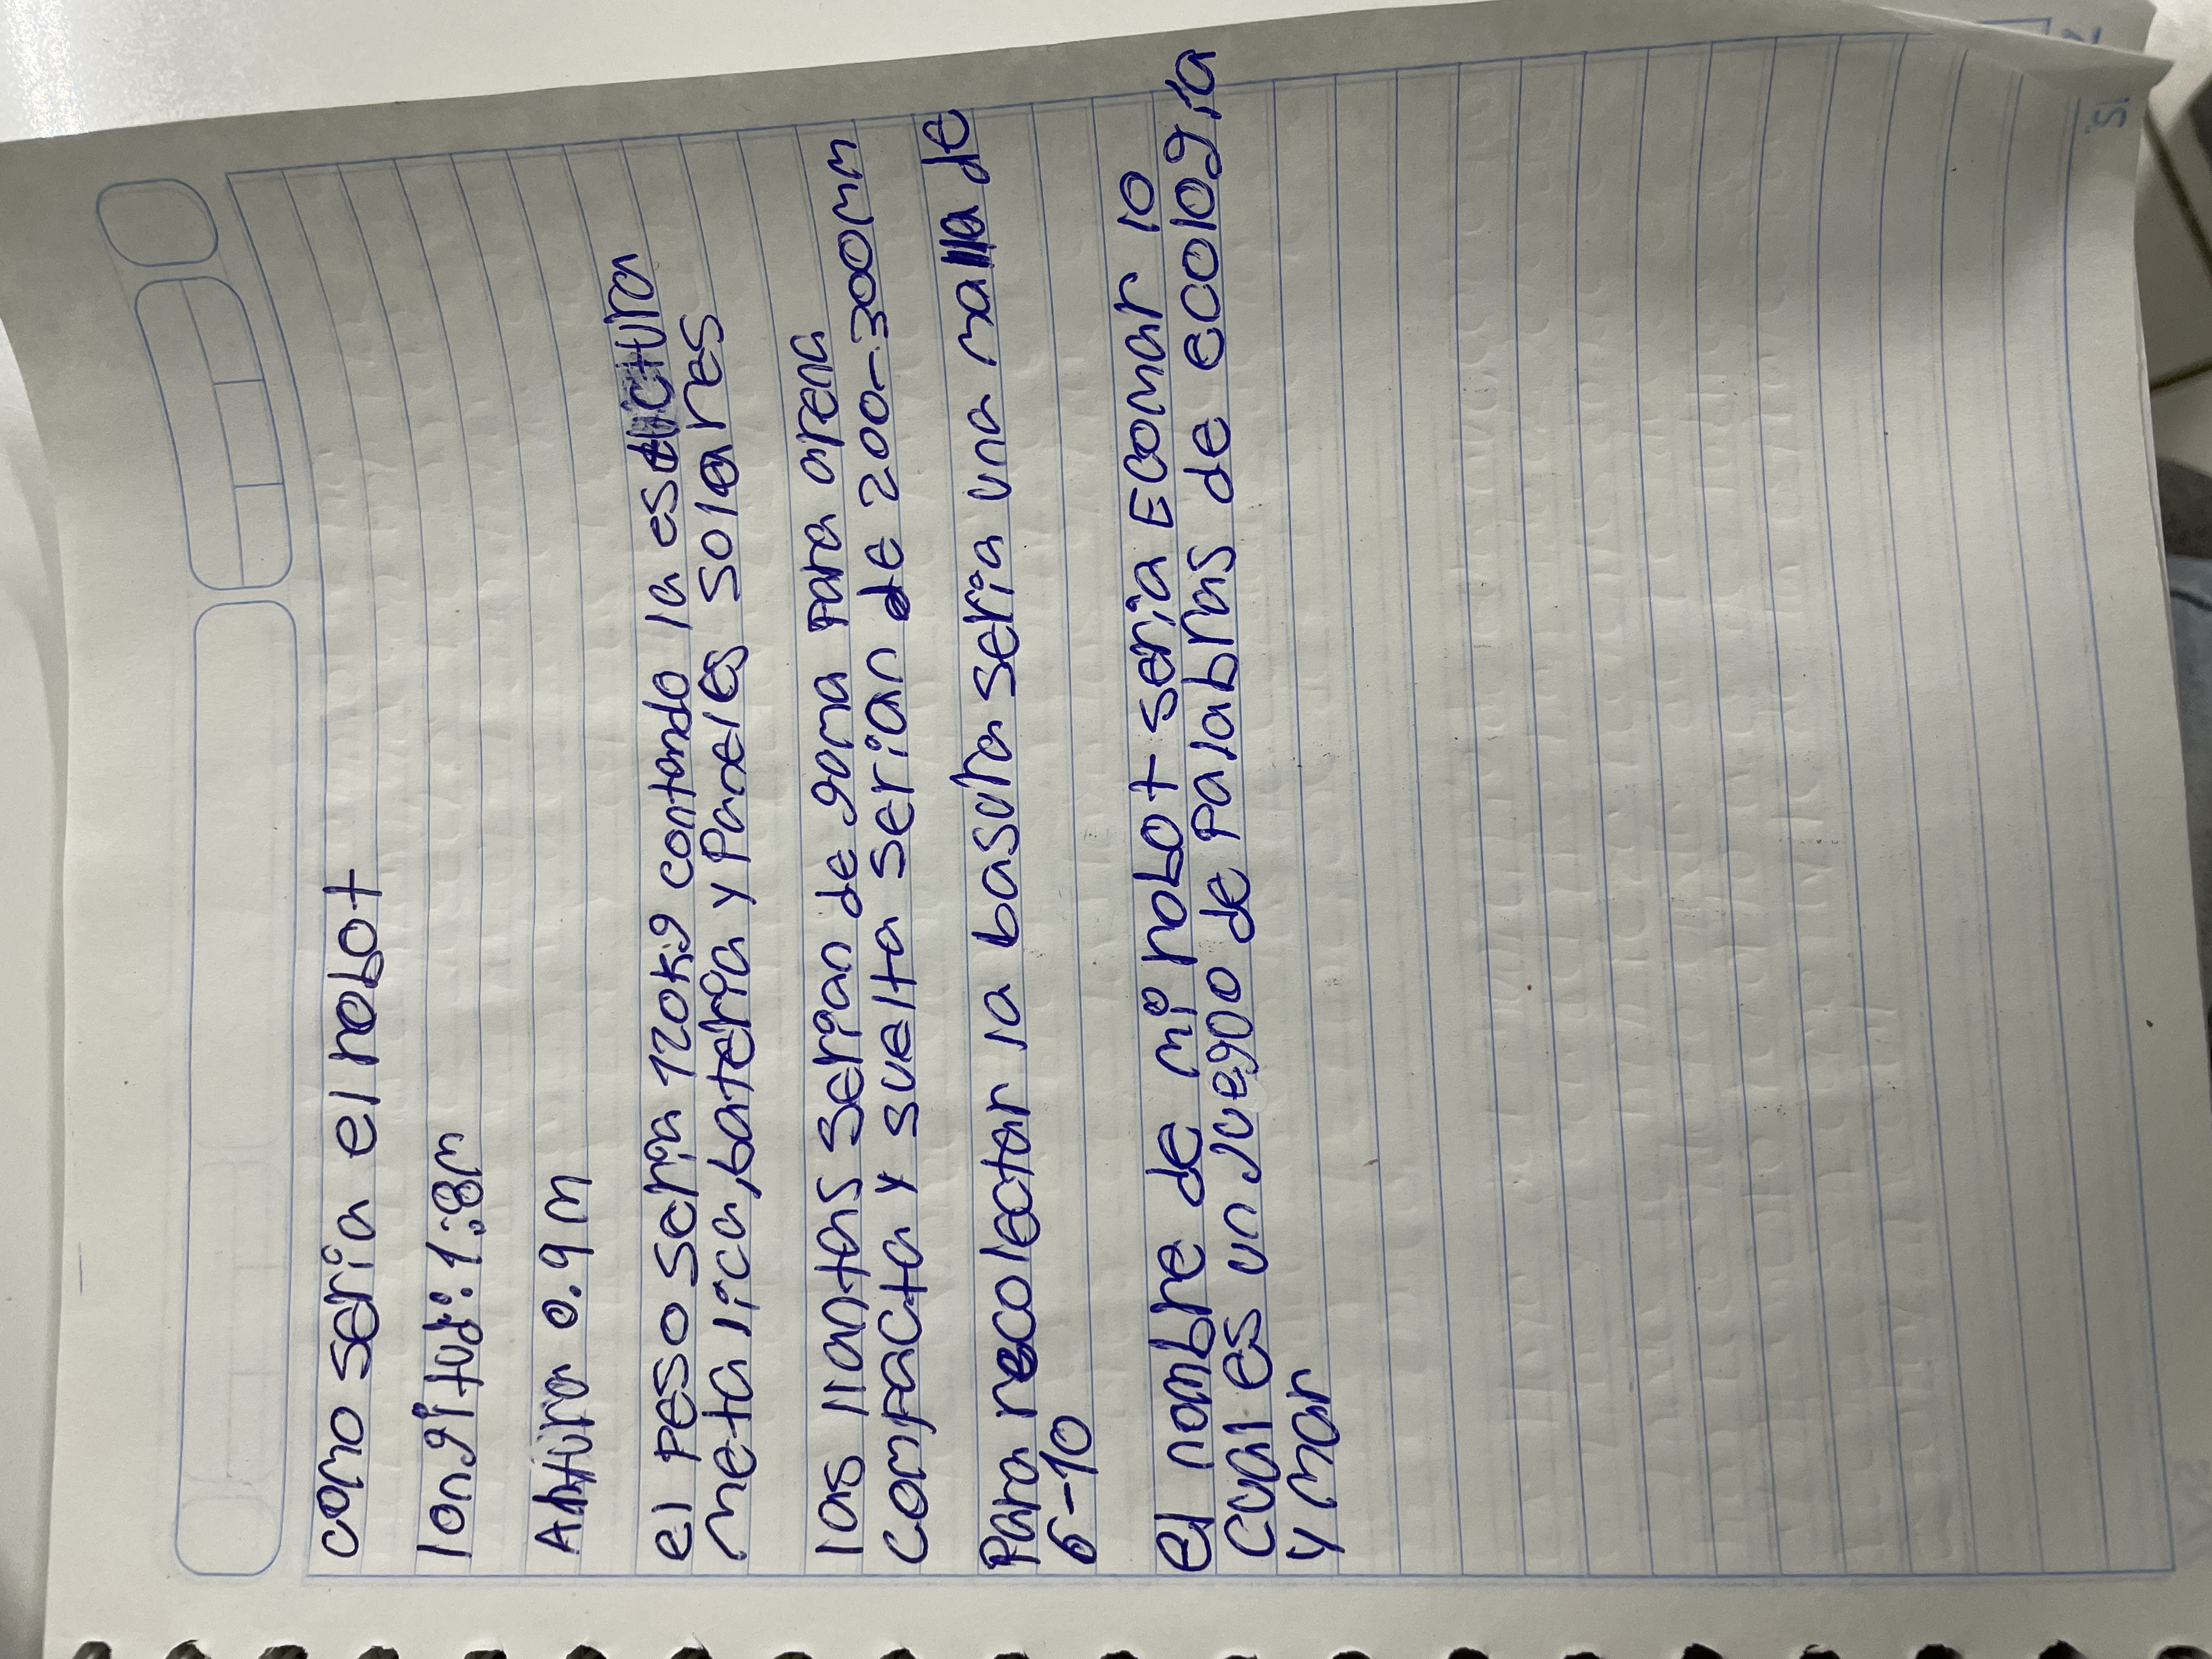 como seria el robot
longitud: 1.8m
Altura 0.9m
el peso seria 120kg contando la estuctura
metalica, bateria y Paneles solares
las llantas serian de goma para arena
compacta y suelta serian de 200-300mm
Para recolectar la basura seria una malla de
6-10
el nombre de mi robot seria Ecomar lo
cual es un Juego de Palabras de ecologia
y mar